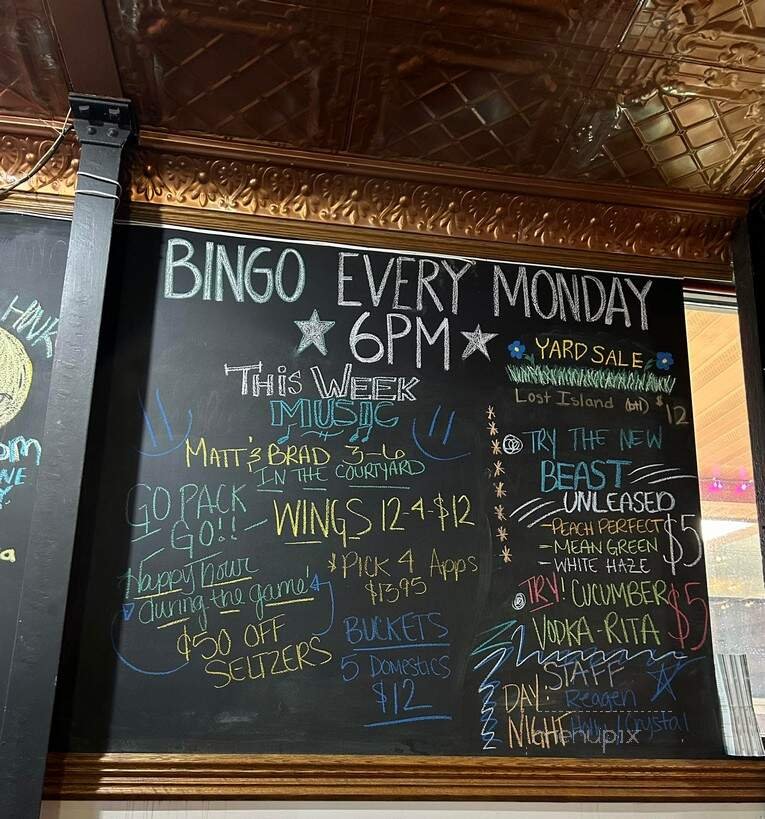 BINGO EVERY MONDAY
6PM
THIS WEEK
MUSIC
MATT & BRAD 3-6
IN THE COURTYARD
GO PACK
GO!!
Happy hour
during the game!
$.50 OFF
SELTZERS
WINGS 12 4 $12
*PICK 4 Apps
$13.95
BUCKETS
5 Domestics
$12
YARD SALE
Lost Island (btl) $12
TRY THE NEW
BEAST
UNLEASED
- PEACH PERFECT
- MEAN GREEN
- WHITE HAZE
$5
TRY! CUCUMBER
VODKA-RITA
$5
STAFF
DAY: Reagen
NIGHT Holly / Crystal
HNK
OM
NE
a